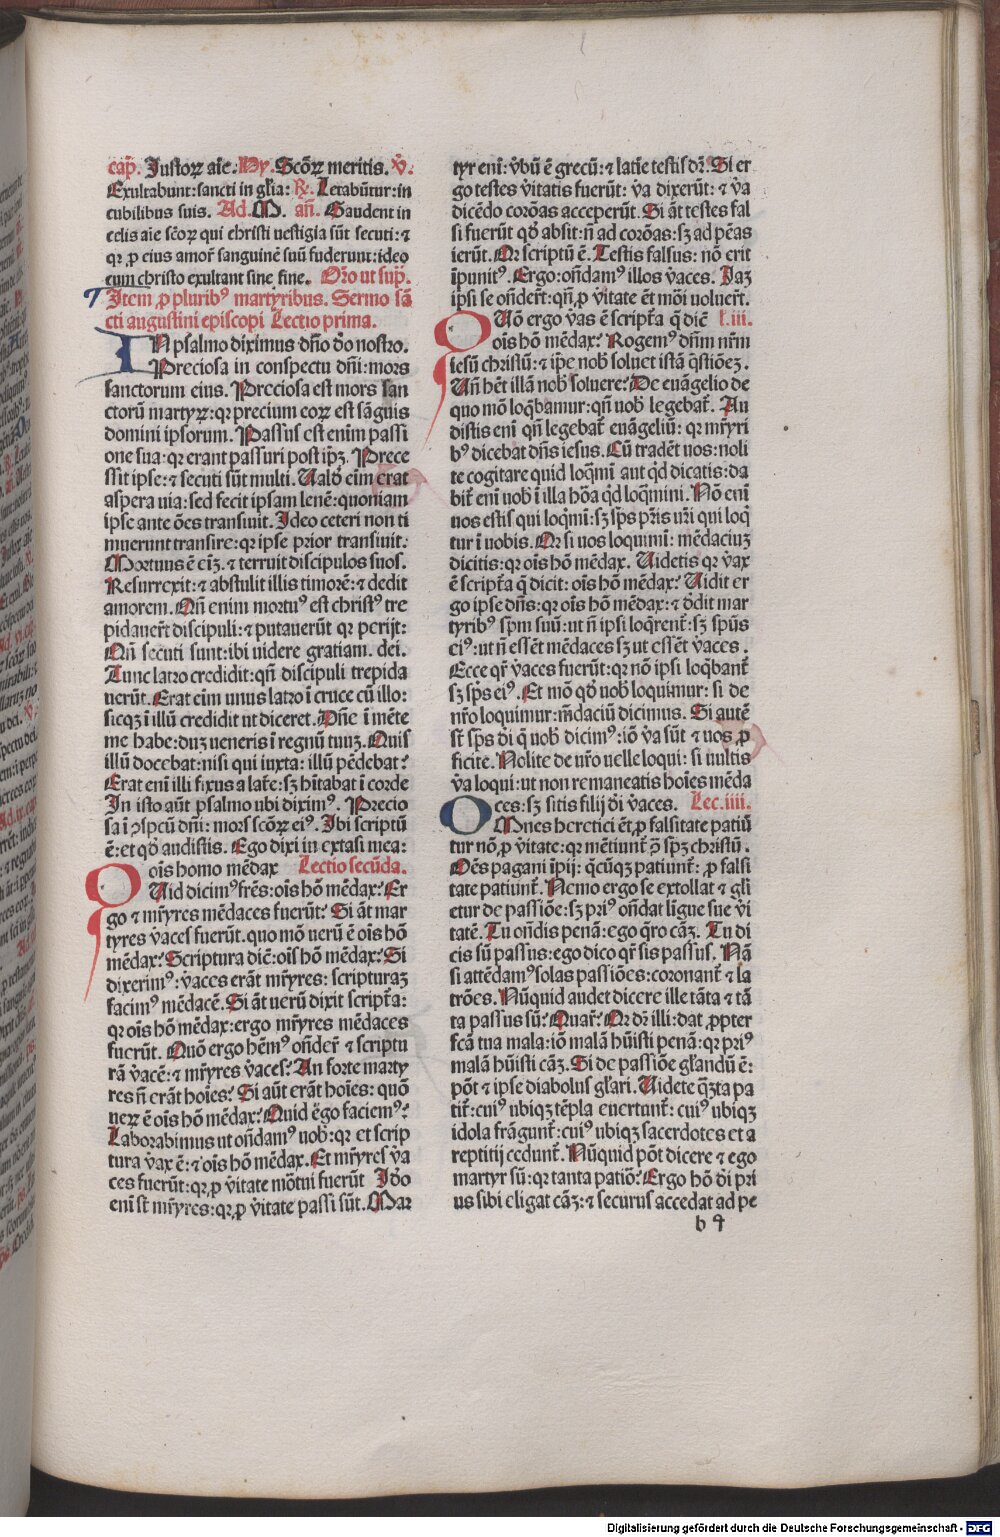 cap̄. Justoꝝ aīe. Hy. Scōꝝ meritis. v̄.
Exultabunt: sancti in gl̄ia: R̄. Letabūtur: in
cubilibus suis. Ad. M. an̄. Gaudent in
celis aīe sc̄oꝝ qui christi vestigia sūt secuti: ⁊
qꝛ ꝓ eius amor̄ sanguinē suū fuderunt: ideo
cum christo exultant sine fine. Or̄o ut sup̄.
Item ꝓ pluribꝰ martyribus. Sermo sā
cti augustini episcopi Lectio prima.
IN psalmo diximus dn̄o d̄o nostro.
Preciosa in conspectu dn̄i: mors
sanctorum eius. Preciosa est mors san
ctorū martyꝝ: qꝛ precium eoꝝ est sāguis
domini ipsorum. Passus est enim passi
one sua: qꝛ erant passuri post ip̄ꝫ. Prece
ssit ipse: ⁊ secuti sūt multi. Ualď eīm erat
aspera uia: sed fecit ipsam lenē: quoniam
ipse ante ōes transiuit. Ideo ceteri non ti
muerunt transire: qꝛ ipse prior transiuit:
Mortuus ē eiꝫ. ⁊ terruit discipulos suos.
Resurrexit: ⁊ abstulit illis timorē: ⁊ dedit
amorem. Qn̄ enim mortuꝰ est christꝰ tre
pidauer̄t discipuli: ⁊ putauerūt qꝛ perijt:
Qn̄ secuti sunt: ibi uidere gratiam. dei.
Tunc latro credidit: qn̄ discipuli trepida
uerūt. Erat eīm unus latro ī cruce cū illo:
sicqꝫ ī illū credidit ut diceret. Dn̄e ī mēte
me habe: duꝫ ueneris ī regnū tuuꝫ. Quis
illū docebat: nisi qui iuxta: illū pēdebat?
Erat enī illi fixus a later̄: sꝫ hītabat ī corde
In isto aūt psalmo ubi diximꝰ. Precio
sa ī ꝯspcū dn̄i: mors scōꝝ eiꝰ. Ibi scriptū
ē: et qď audistis. Ego dixi in extasi mea:
oīs homo mēdax Lectio secūda.
QUid dicimꝰ fr̄es: oīs hō mēdax? Er
go ⁊ mr̄yres mēdaces fuerūt? Si āt mar
tyres v̄aces fuerūt. quo mō uerū ē oīs hō
mēdax? Scriptura diē: oīs hō mēdax? Si
dixerimꝰ: v̄aces erāt mr̄yres: scripturaꝫ
facimꝰ mēdacē. Si āt uerū dixit script̄a:
qꝛ oīs hō mēdax: ergo mr̄yres mēdaces
fuerūt. Quō ergo hēmꝰ ōnder̄ ⁊ scriptu
rā v̄acē: ⁊ mr̄yres v̄aces? An forte marty
res n̄ erāt hoīes? Si aūt erāt hoīes: quō
neꝝ ē oīs hō mēdax? Quid ēgo faciemꝰ?
Laborabimus ut ōndamꝰ uob̄: qꝛ et scrip
tura v̄ax ē: ⁊ oīs hō mēdax. Et mr̄yres v̄a
ces fuerūt: qꝛ ꝓ v̄itate mōtui fuerūt Iďo
enī st̄ mr̄yres: qꝛ ꝓ v̄itate passi sūt. Mar
tyr enī: v̄bū ē grecū: ⁊ latīe testis dr̄. Si er
go testes v̄itatis fuerūt: v̄a dixerūt: ⁊ v̄a
dicēdo corōas acceperūt. Si āt testes fal
si fuerūt qď absit: n̄ ad corōas: sꝫ ad pēas
ierūt. Qꝛ scriptū ē. Testis falsus: nō erit
īpunitꝰ. Ergo: ōndamꝰ illos v̄aces. Iaꝫ
ipsi se ōnder̄t: qn̄ ꝓ v̄itate ēt mōi uoluer̄t.
QUō ergo v̄as ē script̄a q̄ diē l. iii.
oīs hō mēdax? Rogemꝰ dn̄m nr̄m
iesū christū: ⁊ ip̄e nob̄ soluet istā q̄stiōeꝫ.
Un̄ hēt illā nob̄ soluere? De euāgelio de
quo mō loq̄bamur: qn̄ uob̄ legebat̄. Au
distis enī qn̄ legebat̄ euāgeliū: qꝛ mr̄yri
bꝰ dicebat dn̄s iesus. Cū tradēt uos: noli
te cogitare quid loq̄mī aut qď dicatis: da
bit̄ enī uob̄ ī illa hōa qď loq̄mini. Nō enī
uos estis qui loq̄mī: sꝫ sp̄s pr̄is ur̄i qui loq̄
tur ī uobis. Qꝛ si uos loquimī: mēdaciuꝫ
dicitis: qꝛ oīs hō mēdax. Uidetis qꝛ v̄ax
ē script̄a q̄ dicit: oīs hō mēdax? Uidit er
go ipse dn̄s: qꝛ oīs hō mēdax: ⁊ ďdit mar
tyribꝰ sp̄m suū: ut n̄ ipsi loq̄rent̄: sꝫ sp̄us
eiꝰ: ut n̄ essēt mēdaces sꝫ ut essēt v̄aces.
Ecce qr̄ v̄aces fuerūt: qꝛ nō ipsi loq̄bant̄
sꝫ sp̄s eiꝰ. Et mō qď uob̄ loquimur: si de
nr̄o loquimur: m̄daciū dicimus. Si autē
st̄ sp̄s ďi q̄ uob̄ dicimꝰ: iō v̄a sūt ⁊ uos ꝓ
ficite. Nolite de ur̄o uelle loqui: si uultis
v̄a loqui: ut non remaneatis hoīes mēda
ces: sꝫ sitis filij ďi v̄aces. Lec. iiii.
OMnes heretici ēt ꝓ falsitate patiū
tur nō ꝓ v̄itate: qꝛ mētiunt̄ ꝯ̄ sp̄ꝫ christū.
Oēs pagani īpij: q̄cūqꝫ patiunt̄: ꝓ falsi
tate patiunt̄. Nemo ergo se extollat ⁊ gl̄i
etur de passiōe: sꝫ priꝰ ōndat līgue sue v̄i
tatē. Tu ōndis penā: ego q̄ro cāꝫ. Tu di
cis sū passus: ego dico qr̄ sis passꝰ. Nā
si attēdamꝰ solas passiōes: coronant̄ ⁊ la
trōes. Nūquid audet dicere ille tāta ⁊ tā
ta passus sū? Quar̄? Qꝛ dr̄ illi: dat ꝓpter
fcā tua mala: iō malā hūisti penā: qꝛ priꝰ
malā hūisti cāꝫ. Si de passiōe gl̄andū ē:
pōt ⁊ ipse diabolus gl̄ari. Uidete q̄ꝫta pa
tit̄: cuiꝰ ubiqꝫ tēpla euertunt̄: cuiꝰ ubiqꝫ
idola frāgunt̄: cuiꝰ ubiqꝫ sacerdotes et a
reptitij cedunt̄. Nūquid pōt dicere ⁊ ego
martyr sū: qꝛ tanta patiō? Ergo hō ďi pri
us sibi eligat cāꝫ: ⁊ securus accedat ad pe
b 9
Digitalisierung gefördert durch die Deutsche Forschungsgemeinschaft - DFG